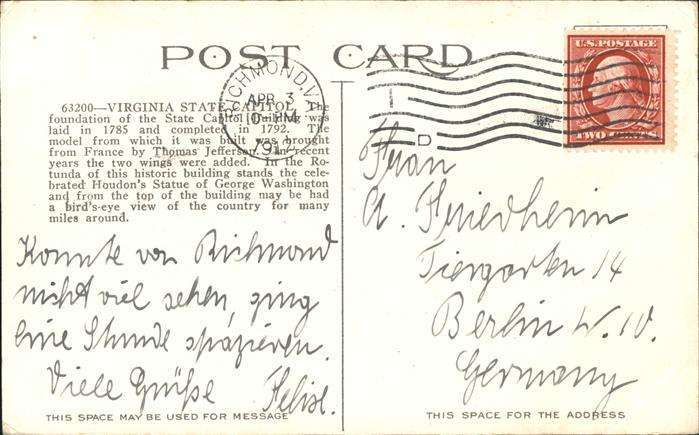 POST CARD
U.S. POSTAGE
TWO CENTS
RICHMOND, V
APR 3
PM
D
63200—VIRGINIA STATE CAPITOL. The
foundation of the State Capitol Building was
laid in 1785 and completed in 1792. The
model from which it was built was brought
from France by Thomas Jefferson. In recent
years the two wings were added. In the Ro-
tunda of this historic building stands the cele-
brated Houdon's Statue of George Washington
and from the top of the building may be had
a bird's-eye view of the country for many
miles around.
Konnte von Richmond
nicht viel sehen, ging
eine Stunde spazieren.
Viele Grüße Felix.
THIS SPACE MAY BE USED FOR MESSAGE
Frau
A. Friedheim
Tiergarten 14
Berlin W. 10.
Germany
THIS SPACE FOR THE ADDRESS